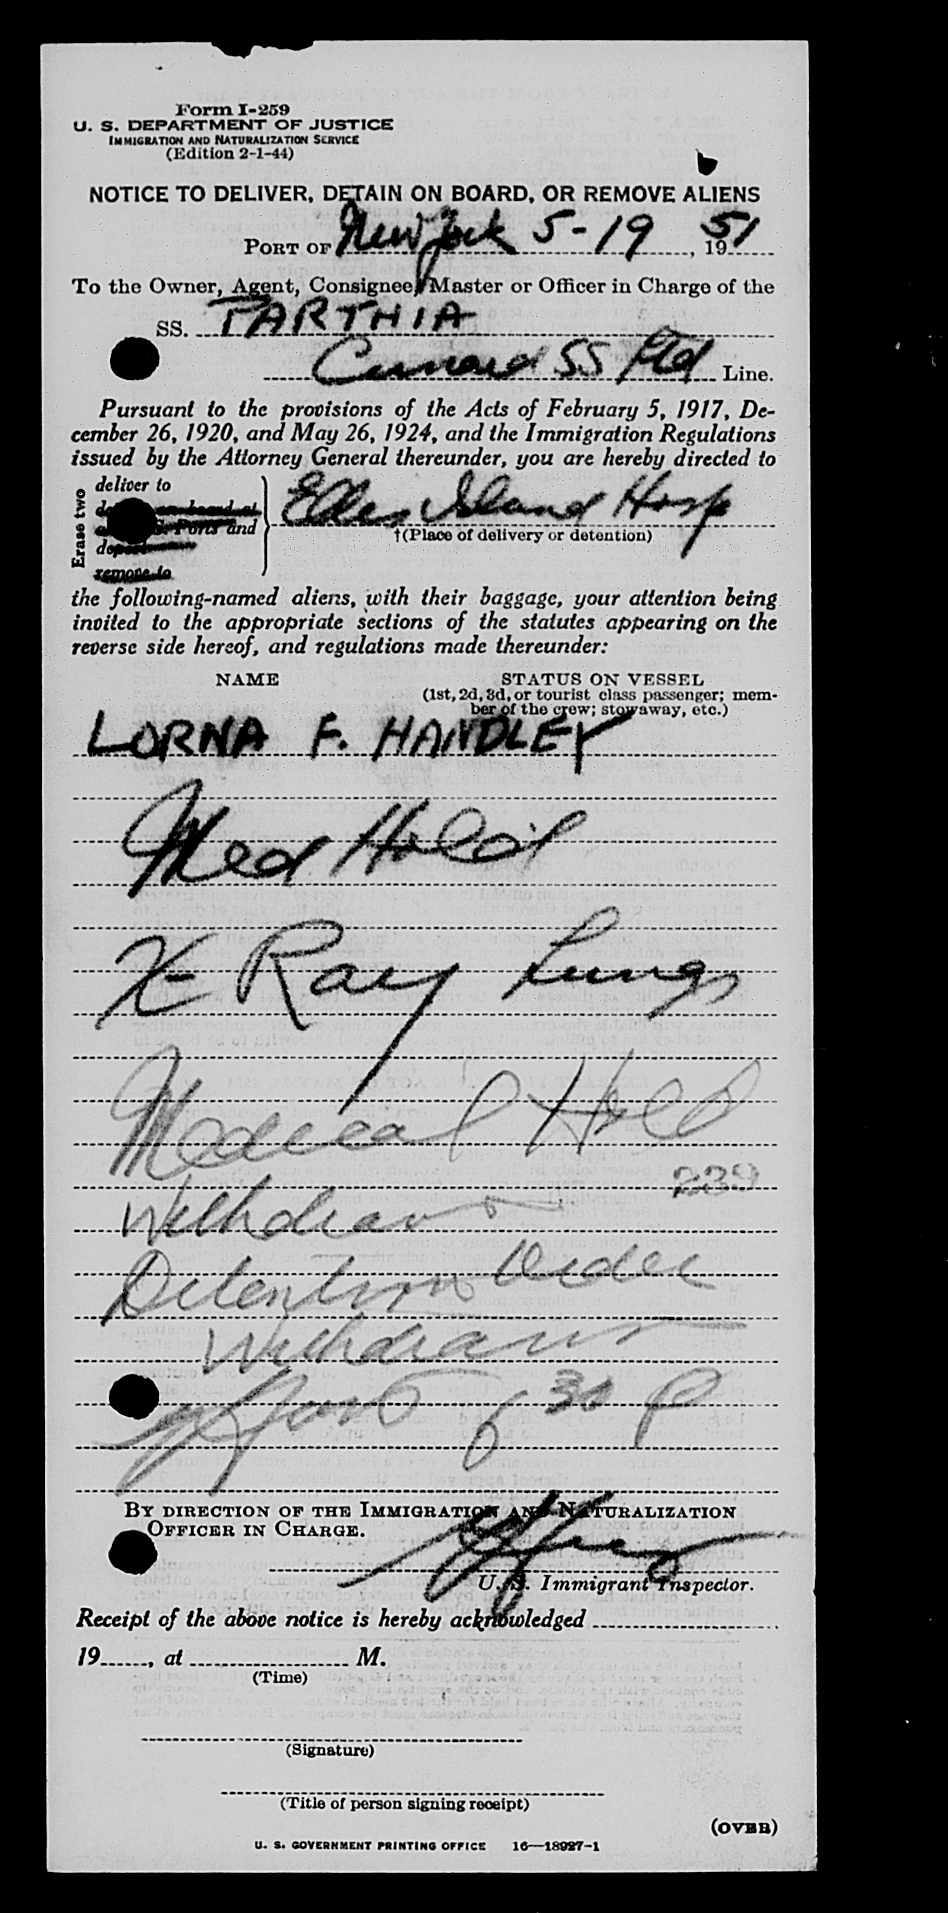 Form I-259
U. S. DEPARTMENT OF JUSTICE
IMMIGRATION AND NATURALIZATION SERVICE
(Edition 2-1-44)
NOTICE TO DELIVER, DETAIN ON BOARD, OR REMOVE ALIENS
PORT OF New York 5-19, 1951
To the Owner, Agent, Consignee, Master or Officer in Charge of the
SS. PARTHIA
Cunard SS Ltd Line.
Pursuant to the provisions of the Acts of February 5, 1917, De-
cember 26, 1920, and May 26, 1924, and the Immigration Regulations
issued by the Attorney General thereunder, you are hereby directed to
Erase two
deliver to
on board at
Ports and
remove to
Ellis Island Hosp
†(Place of delivery or detention)
the following-named aliens, with their baggage, your attention being
invited to the appropriate sections of the statutes appearing on the
reverse side hereof, and regulations made thereunder:
NAME STATUS ON VESSEL
(1st, 2d, 3d, or tourist class passenger; mem-
ber of the crew; stowaway, etc.)
LORNA F. HANDLEY
Med Hold
X-Ray Lungs
Medical Hold
239
Withdrawn
Detention Order
Withdrawn
6 30 P
BY DIRECTION OF THE IMMIGRATION AND NATURALIZATION
OFFICER IN CHARGE.
U. S. Immigrant Inspector.
Receipt of the above notice is hereby acknowledged
19 , at M.
(Time)
(Signature)
(Title of person signing receipt)
(OVER)
U. S. GOVERNMENT PRINTING OFFICE 16—18927-1